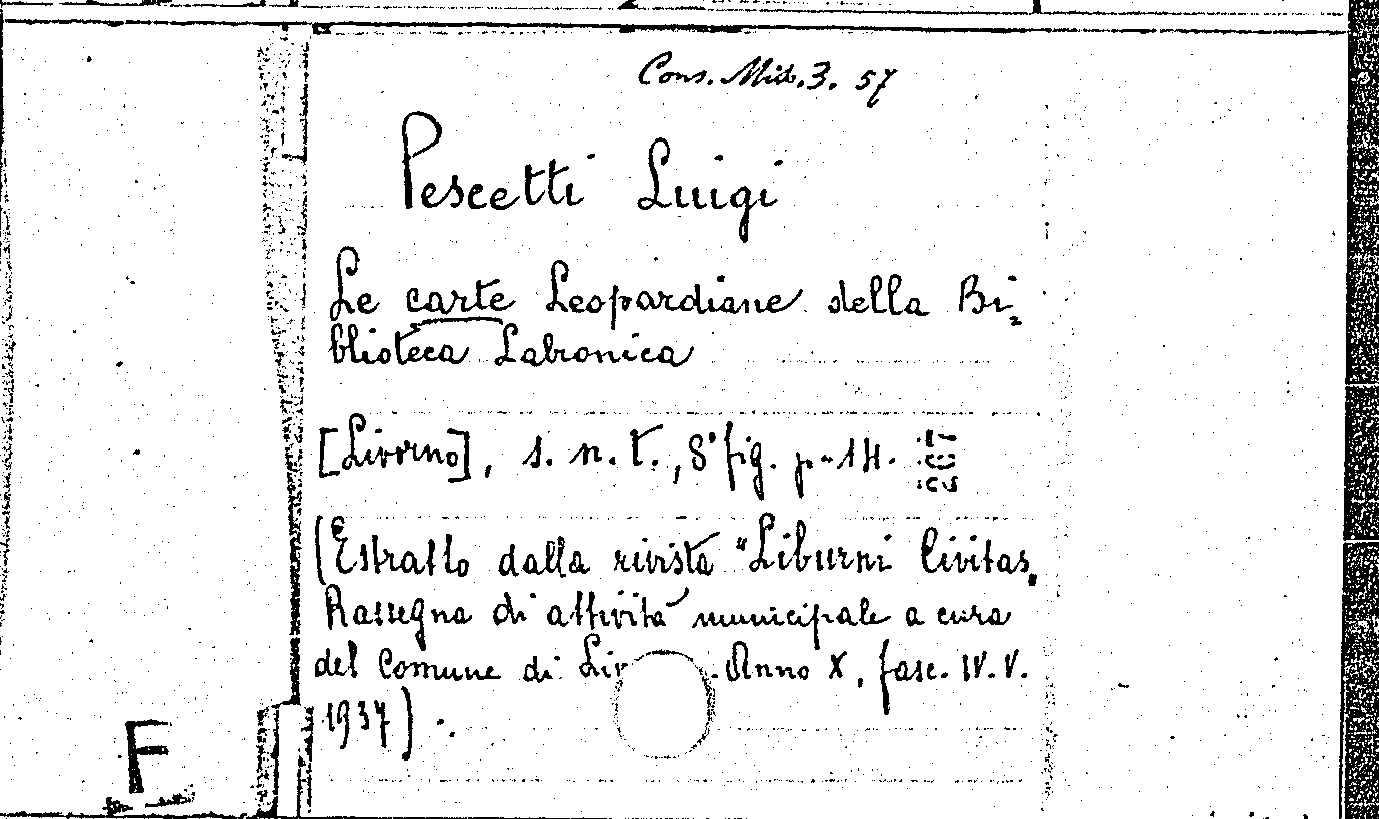 Cons. Mis. 3. 57
Pescetti Luigi
Le carte Leopardiane della Bi=
blioteca Labronica
[Livorno], s. n. t., 8° fig. p. 14.
(Estratto dalla rivista "Liburni Civitas"
Rassegna di attività municipale a cura
del Comune di Liv . Anno X, fasc. IV. V.
1937).
F